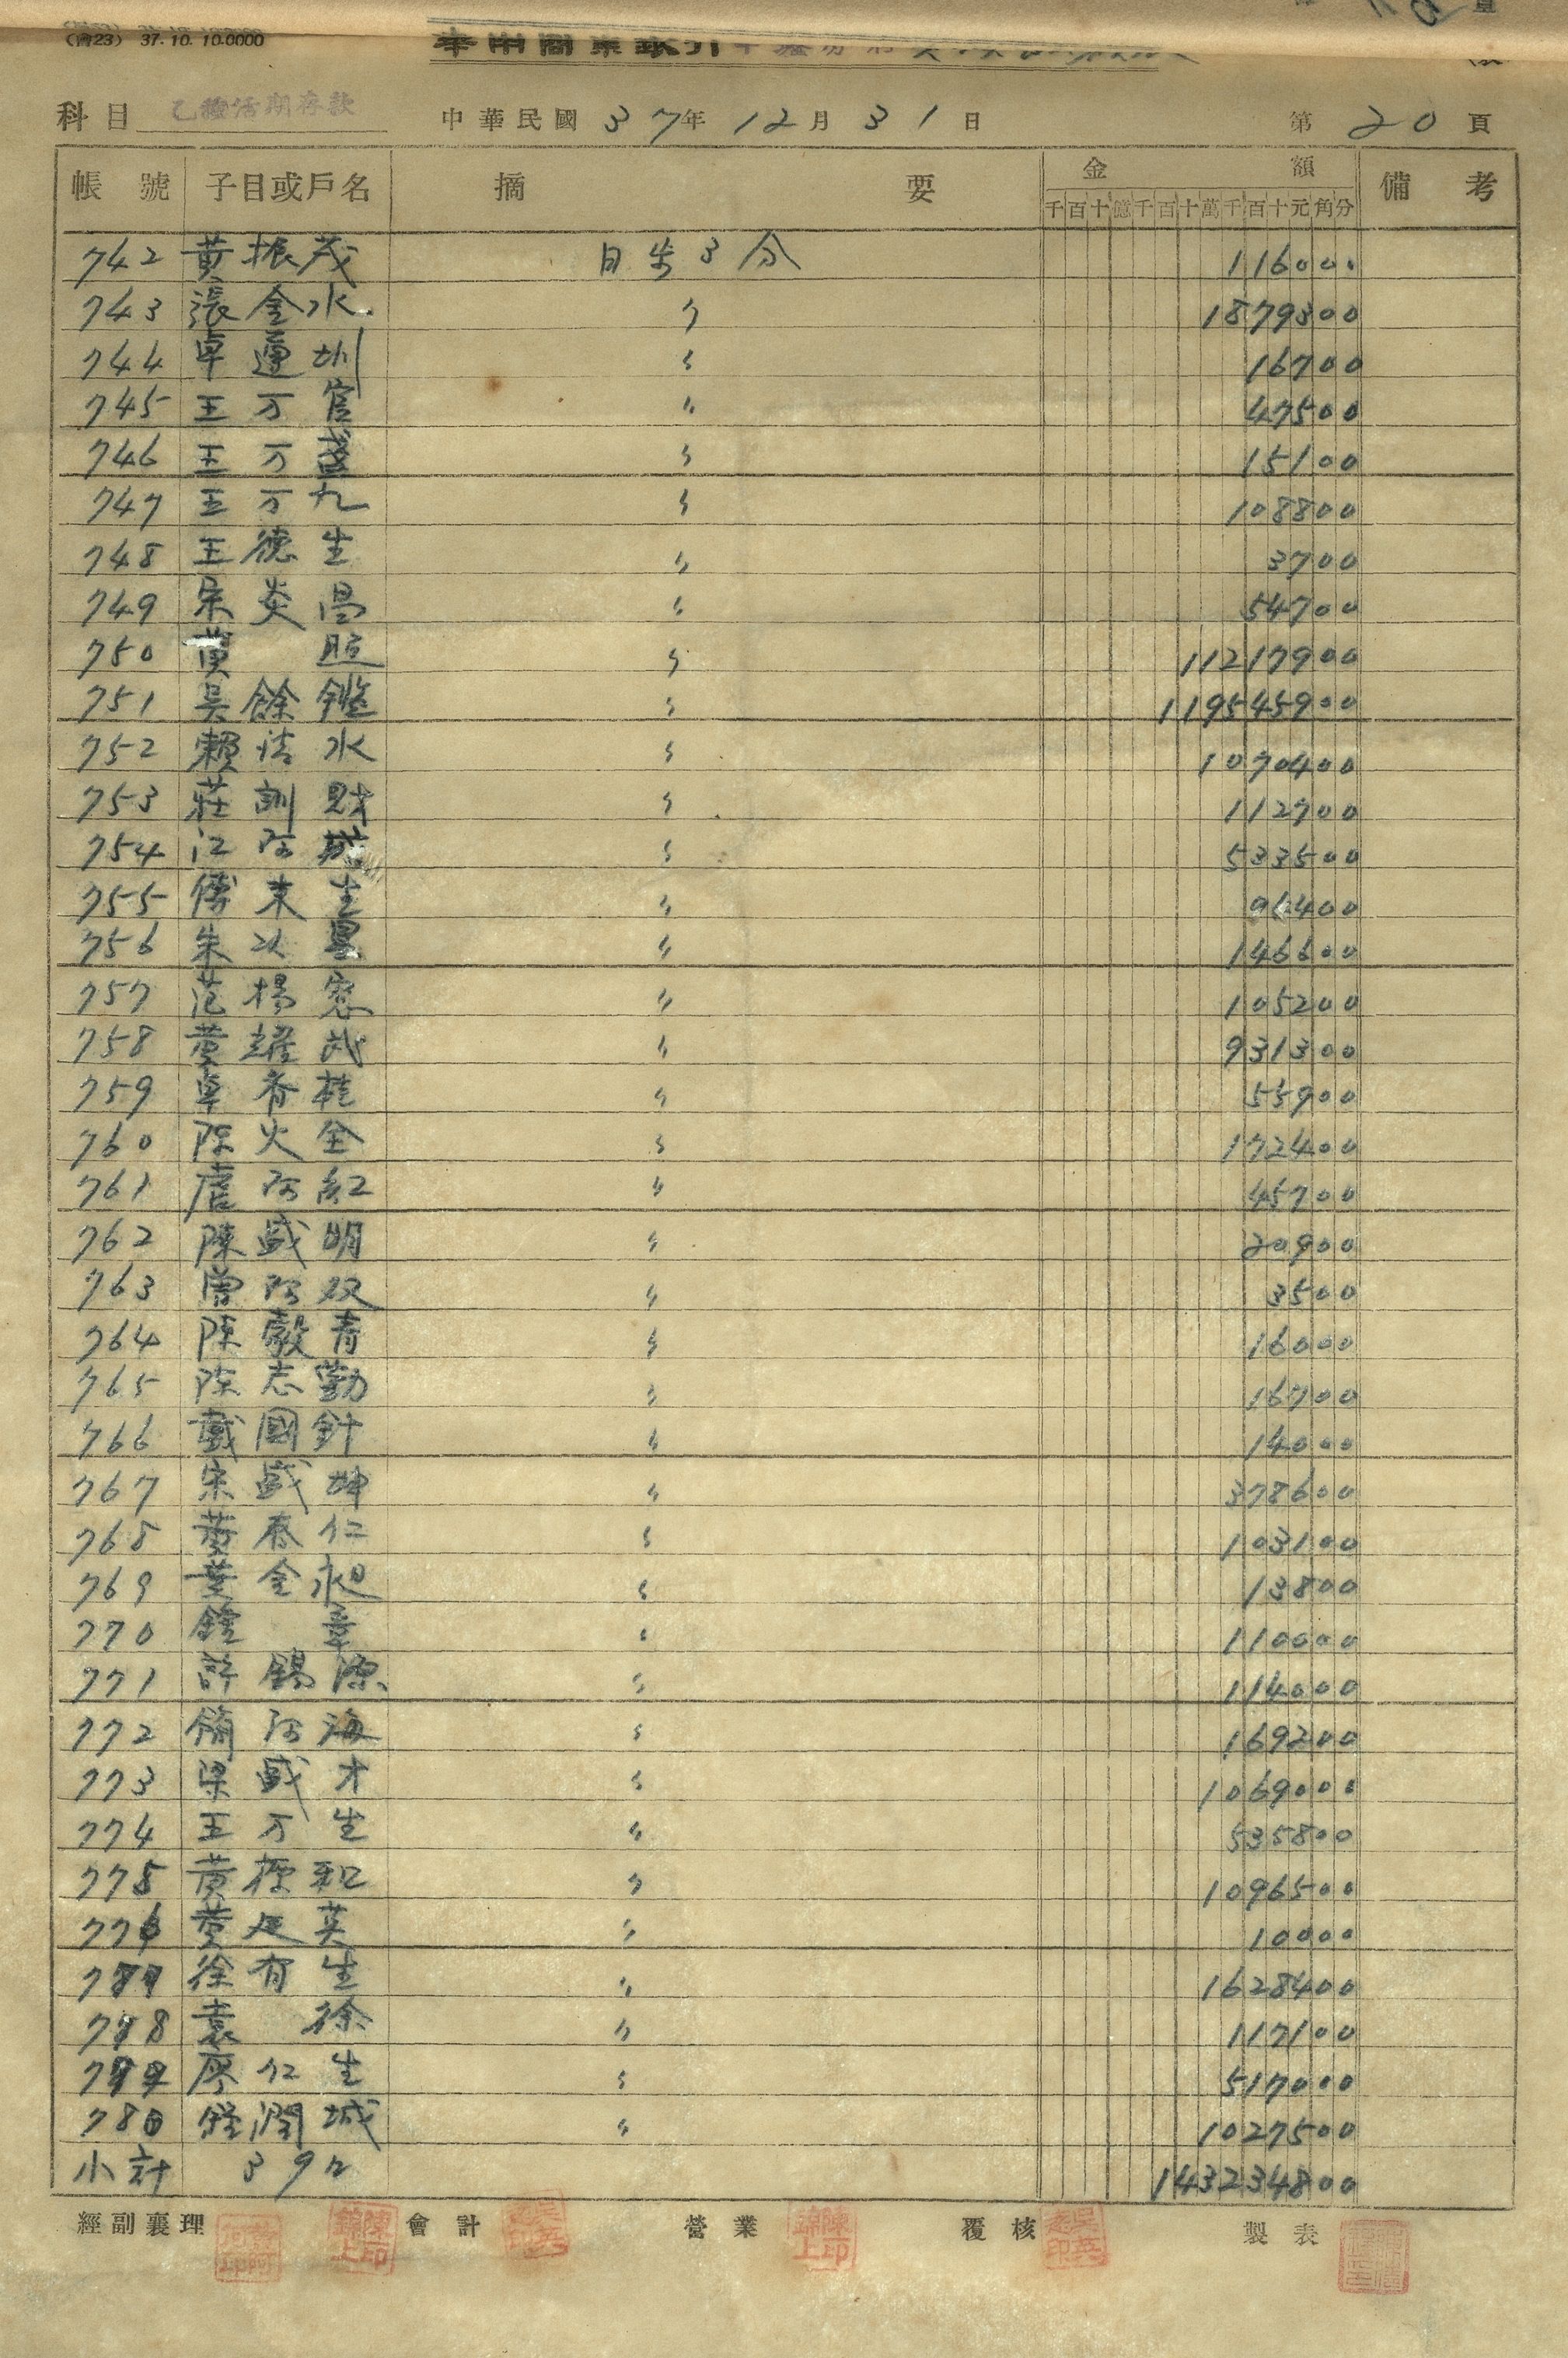 (會23) 37.10.10.0000
科目 乙種活期存款 中華民國 37年 12月 31日 第 20 頁
帳號 子目或戶名 摘要 金額 備考
千百十億千百十萬千百十元角分
742 黃振茂 日步3分 116000
743 張金水 〃 1879300
744 卓運圳 〃 16700
745 王万官 〃 47500
746 王万盛 〃 15100
747 王万九 〃 108800
748 王德生 〃 3700
749 宋炎昌 〃 54700
750 黃 照 〃 11217900
751 吳餘鑑 〃 119545900
752 賴清水 〃 1070400
753 莊訓財 〃 112700
754 江阿城 〃 533500
755 傅末生 〃 96400
756 朱次星 〃 146600
757 范楊窓 〃 105200
758 黃耀武 〃 931300
759 卓香桂 〃 55900
760 陳火金 〃 172400
761 詹阿紅 〃 45700
762 陳盛明 〃 20900
763 曾阿双 〃 3500
764 陳毅青 〃 16000
765 陳志勤 〃 16700
766 戴國針 〃 14000
767 宋盛坤 〃 378600
768 黃泰仁 〃 103100
769 葉金昶 〃 13800
770 鍾 章 〃 110000
771 許錫源 〃 114000
772 簡阿海 〃 169200
773 梁盛才 〃 1069000
774 王万生 〃 535800
775 黃標和 〃 1096500
776 黃足英 〃 10000
777 徐有生 〃 1628400
778 袁 徐 〃 117100
779 廖仁生 〃 517000
780 鍾潤城 〃 1027500
小計 39口 143234800
經副襄理 會計 營業 覆核 製表